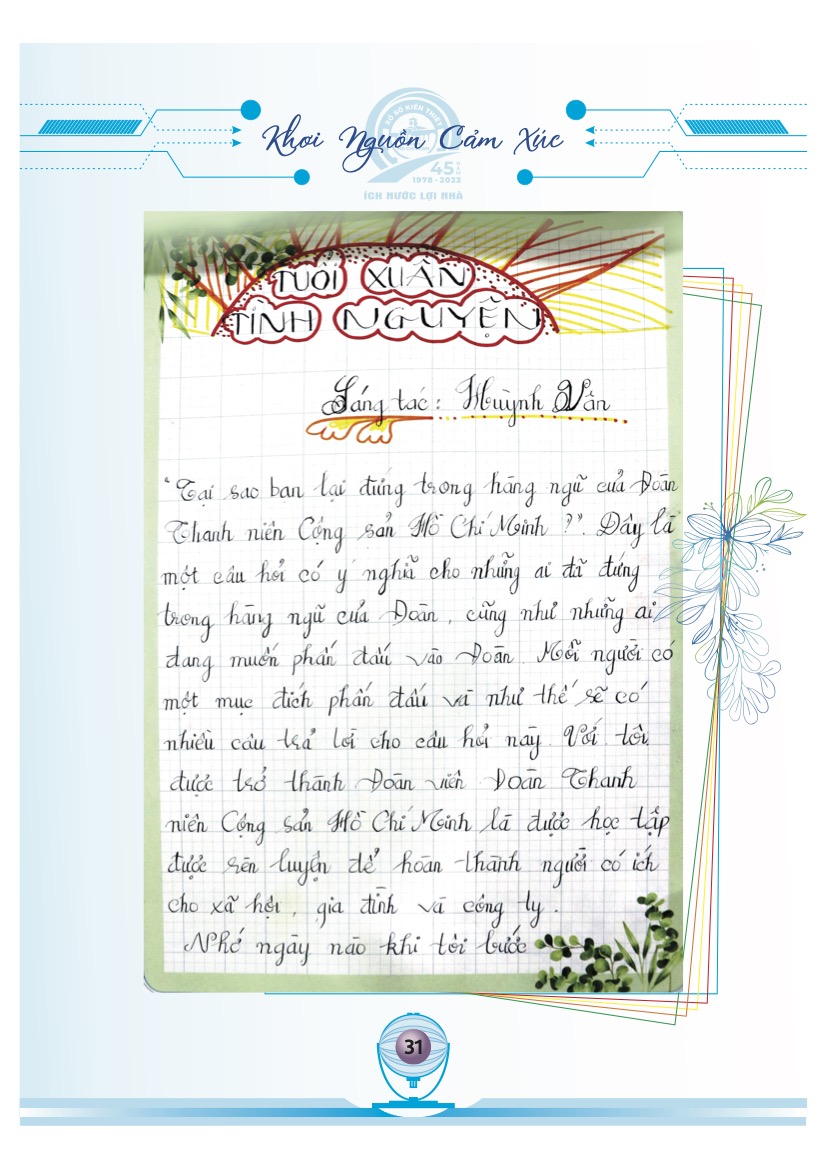 XỔ SỐ KIẾN THIẾT
Khơi Nguồn Cảm Xúc
45 NĂM
1978 - 2023
ÍCH NƯỚC LỢI NHÀ
TUỔI XUÂN
TÌNH NGUYỆN
Sáng tác : Huỳnh Vân
"Tại sao bạn lại đứng trong hàng ngũ của Đoàn
Thanh niên Cộng sản Hồ Chí Minh ?". Đây là
một câu hỏi có ý nghĩa cho những ai đã đứng
trong hàng ngũ của Đoàn, cũng như những ai
đang muốn phấn đấu vào Đoàn. Mỗi người có
một mục đích phấn đấu và như thế sẽ có
nhiều câu trả lời cho câu hỏi này. Với tôi,
được trở thành Đoàn viên Đoàn Thanh
niên Cộng sản Hồ Chí Minh là được học tập
được rèn luyện để hoàn thành người có ích
cho xã hội, gia đình và công ty.
Nhớ ngày nào khi tôi bước
31